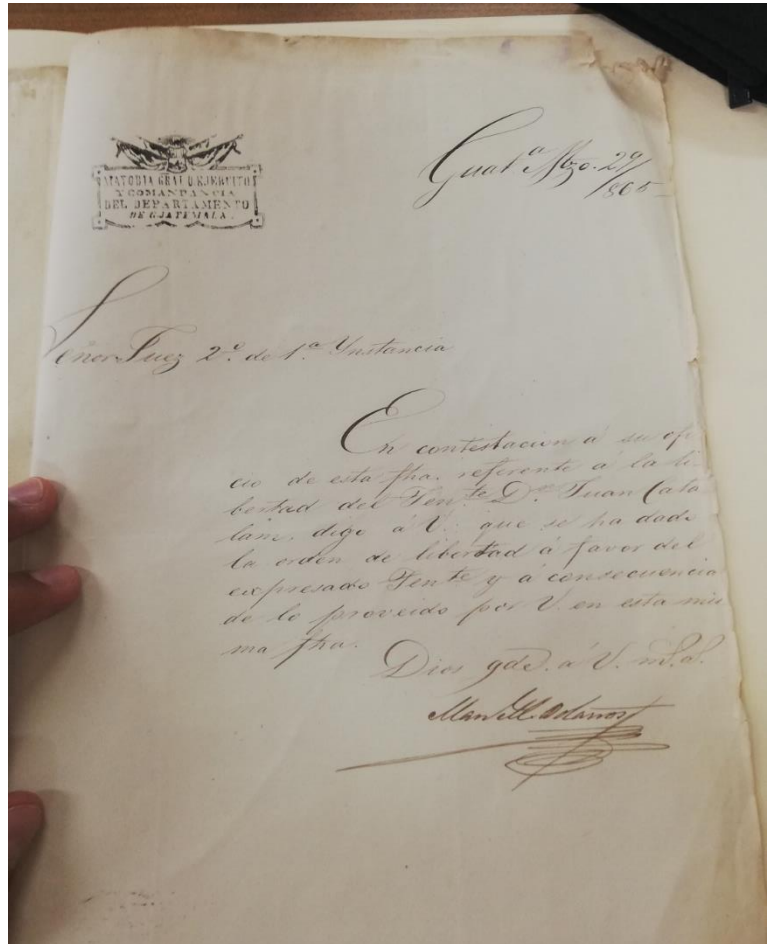 MAYORIA GRAL D. EJERCITO
Y COMANDANCIA
DEL DEPARTAMENTO
DE GUATEMALA.
Guatª Mzo. 29/
/865
Señor Juez 2º. de 1ª. Ynstancia
En contestacion á su ofi
cio de esta fha. referente á la li
bertad del Tente. Dn. Juan Cata
lan, digo á V. que se ha dado
la orden de libertad á favor del
expresado Tente y á consecuencia
de lo proveido por V. en esta mis
ma fha.
Dios gde. á V. m. a.
Manl. Bolaños